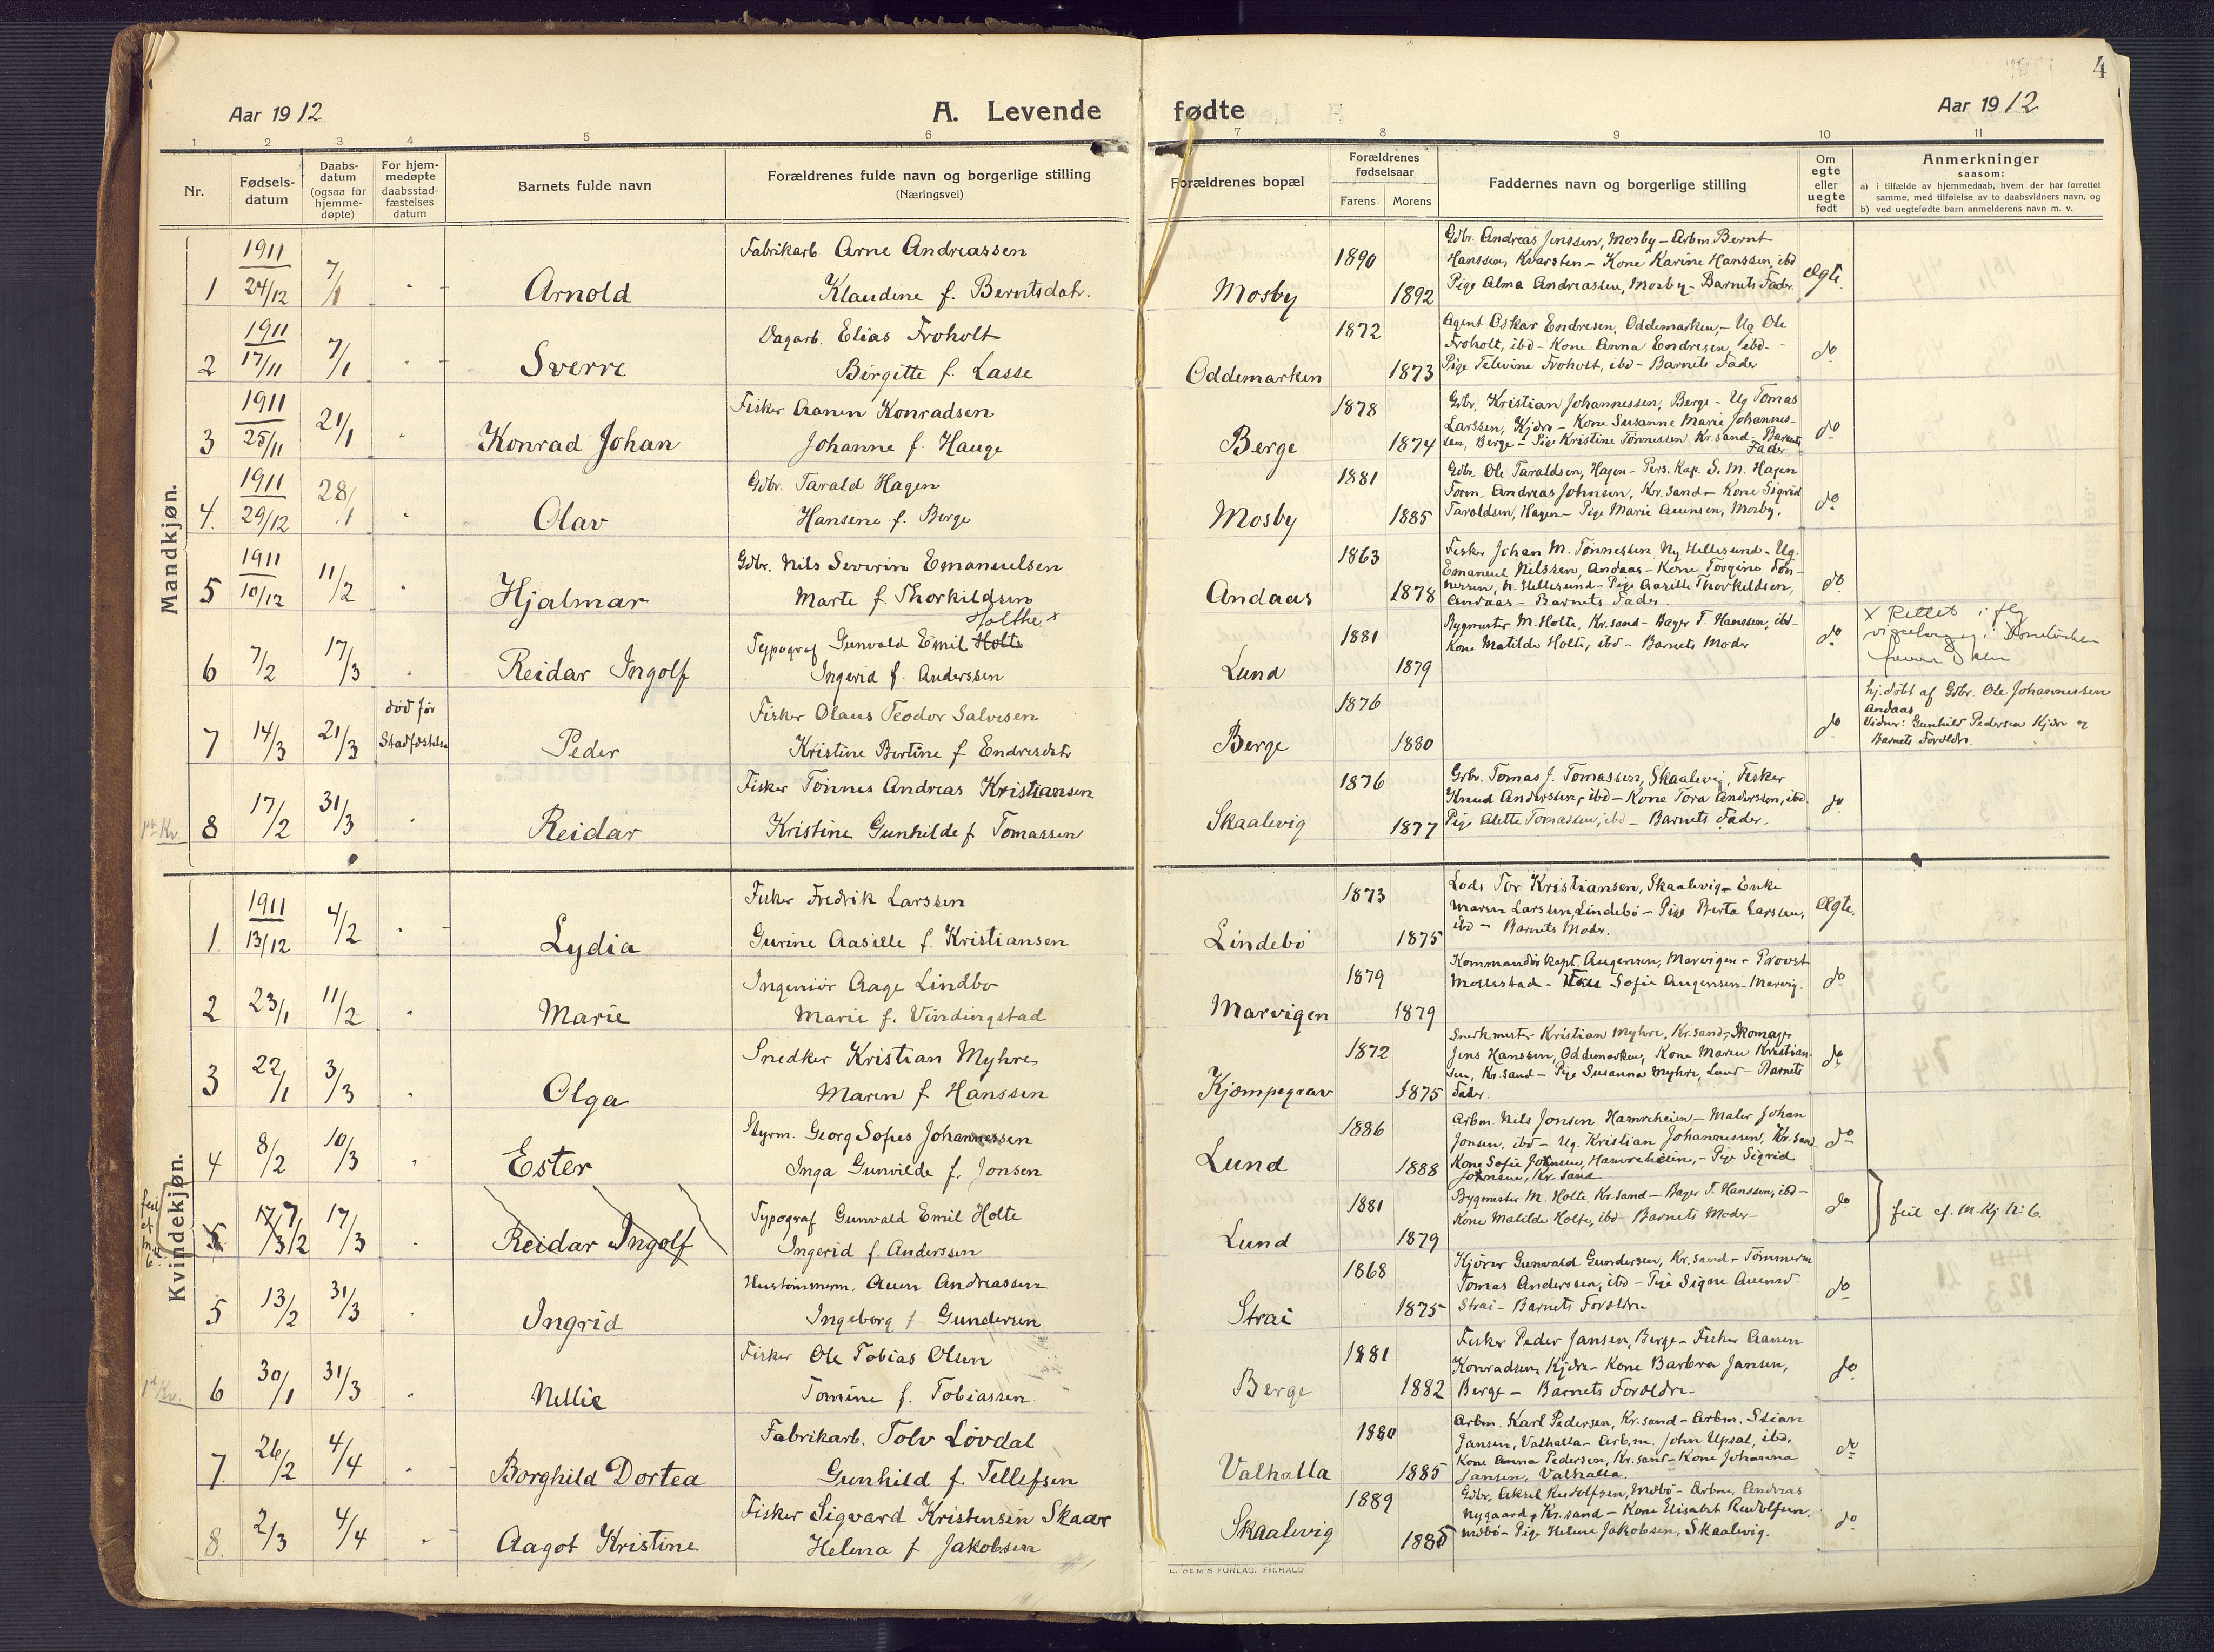 4
Aar 1912
A. Levende fødte
Aar 1912
1 2 3 4 5 6 7 8 9 10 11
Nr.
Fødsels-
datum
Daabs-
datum
(ogsaa for
hjemme-
døpte)
For hjem-
medøpte
daabsstad-
fæstelses
datum
Barnets fulde navn
Forældrenes fulde navn og borgerlige stilling
(Næringsvei)
Forældrenes bopæl
Forældrenes
fødselsaar
Farens Morens
Faddernes navn og borgerlige stilling
Om
egte
eller
uegte
født
Anmerkninger
saasom:
a) i tilfælde av hjemmedaab, hvem der har forrettet
samme, med tilføielse av to daabsvidners navn, og
b) ved uegtefødte barn anmelderens navn m. v.
Mandkjøn.
1 1911 24/12 7/1 Arnold
Fabrikarb Arne Andreassen
Klaudine f. Berntsdatr.
Mosby 1890 1892
Gdbr. Andreas Jenssen, Mosby - Arbm. Bernt
Hanssen, Kvarsten - Kone Karine Hanssen, ibd
Pige Alma Andreassen, Mosby - Barnets Fader.
Ægte.
2 1911 17/11 7/1 Sverre
Dagarb. Elias Froholt
Birgitte f. Lasse
Oddemarken 1872 1873
Agent Oskar Endresen, Oddemarken, - Ug Ole
Froholt, ibd - Kone Anna Endresen, ibd -
Pige Televine Froholt, ibd - Barnets Fader
do
3 1911 25/11 21/1 Konrad Johan
Fisker Aanen Konradsen
Johanne f. Hauge
Berge 1878 1874
Gdbr. Kristian Johannessen, Berge - Ug Tomas
Larssen, Kjdrr - Kone Susanne Marie Johannes-
sen, Berge - Pige Kristine Tønnessen Kr.sand - Barnets
Fader
do
4. 1911 29/12 28/1 Olav
Gdbr. Tarald Hagen
Hansine f. Berge
Mosby 1881 1885
Gdbr. Ole Taraldsen, Hagen - Pers. Kap. S. M. Hagen
Form. Andreas Johnsen, Kr.sand - Kone Sigrid
Taraldsen, Hagen - Pige Marie Aunsen, Mosby.
do
5 1911 10/12 11/2 Hjalmar
Gdbr. Nils Severin Emanuelsen
Marte f. Thorkildsen
Andaas 1863 1878
Fisker Johan M. Tønnessen, Ny Hellesund - Ug.
Emanuel Nilssen, Andaas - Kone Torgine Tøn-
nessen, N. Hellesund - Pige Aasille Thorkildsen,
Andaas - Barnets Fader.
do
6 7/2 17/3 Reidar Ingolf
Holthe x
Typograf Gunvald Emil Holte
Ingerid f. Anderssen
Lund 1881 1879
Bygmester M. Holte, Kr.sand - Bager T. Hanssen, ibd -
Kone Matilde Holte, ibd - Barnets Moder
do
x Rettet i flg
7 14/3 21/3
død før
Stadfæstelse
Peder
Fisker Olaus Teodor Salvesen
Kristine Bertine f Endresdatr
Berge 1876 1880
do
hj. døbt af Gdbr. Ole Johannessen
Andaas
Vidner: Gunhild Pedersen Kjdrr og
Barnets Forældre.
1st Kv.
8 17/2 31/3 Reidar
Fisker Tønnes Andreas Kristiansen
Kristine Gunhilde f Tomassen
Skaalevig 1876 1877
Gdbr. Tomas J. Tomassen, Skaalevig, Fisker
Knud Anderssen, ibd - Kone Tora Anderssen, ibd.
Pige Alette Tomassen, ibd - Barnets Fader.
do
Kvindekjøn.
1 1911 13/12 4/2 Lydia
Fisker Fredrik Larssen
Gurine Aasille f. Kristiansen
Lindebö 1873 1875
Lods Tor Kristiansen, Skaalevig - Enke
Maren Larssen, Lindebö - Pige Berta Larssen,
ibd - Barnets Moder.
Ægte.
2 23/1 11/2 Marie
Ingeniör Aage Lindbo
Marie f. Vindingstad
Marvigen 1879 1879
Kommandörkapt. Augensen, Marvigen - Provst
Mollestad - Sofie Augensen - Marvig.
do
3 22/1 3/3 Olga
Snedker Kristian Myhre
Maren f Hanssen
Kjæmpegrav 1872 1875
Snedkmester Kristian Myhre, Kr.sand, Skomager
Jens Hanssen, Oddemarken, Kone Maren Kristian-
sen, Kr.sand - Pige Susanna Myhre, Lund - Barnets
Fader.
do
4 8/2 10/3 Ester
Styrm. Georg Sofus Johannessen
Inga Gunvilde f. Jonsen
Lund 1886 1888
Arbm. Nils Jonsen, Hamreheien - Maler Johan
Jonsen, ibd - Ug. Kristian Johannessen, Kr.sand
Kone Sofie Johnsen, Hamreheien, - Pige Sigrid
Johnsen, Kr.sand
do
feil
5 17/3 7/2 17/3 Reidar Ingolf
Typograf Gunvald Emil Holte
Ingerid f. Anderssen
Lund 1881 1879
Bygmester M. Holte Kr.sand - Bager T. Hanssen, ibd -
Kone Matilde Holte, ibd - Barnets Moder -
do
feil cf. M-Kj N: 6.
5 13/2 31/3 Ingrid
Hustømmerm. Auen Andreassen
Ingeborg f Gundersen
Strai 1868 1875
Kjörer Gunvald Gundersen, Kr.sand - Tømmerm
Tomas Anderssen, ibd - Pige Signe Auensd
Strai - Barnets Forældre
do
1st Kv.
6 30/1 31/3 Nellie
Fisker Ole Tobias Olsen
Tomine f. Tobiassen
Berge 1881 1882
Fisker Peder Jansen, Berge - Fisker Aanen
Konradsen, Kjdrr - Kone Barbra Jansen,
Berge - Barnets Forældre -
do
7 26/2 4/4 Borghild Dortea
Fabrikarb. Tolv Lövdal
Gunhild f. Tellefsen
Valhalla 1880 1885
Arbm. Karl Pedersen, Kr.sand - Arbm. Stian
Jansen, Valhalla - Arbm. John Upsal, ibd.
Kone Anna Pedersen, Kr.sand - Kone Johanna
Jansen, Valhalla.
do
8. 2/3 4/4 Aagot Kristine
Fisker Sigvard Kristensen Skaar
Helena f Jakobsen
Skaalevig 1889 1885
Gdbr. Aksel Rudolfsen, Mæbö - Arbm. Andreas
Nygaard, Kr.sand - Kone Elisabet Rudolfsen,
Mæbö - Pige Helene Jakobsen, Skaalevig.
do
L. SEM'S FORLAG, F.HALD